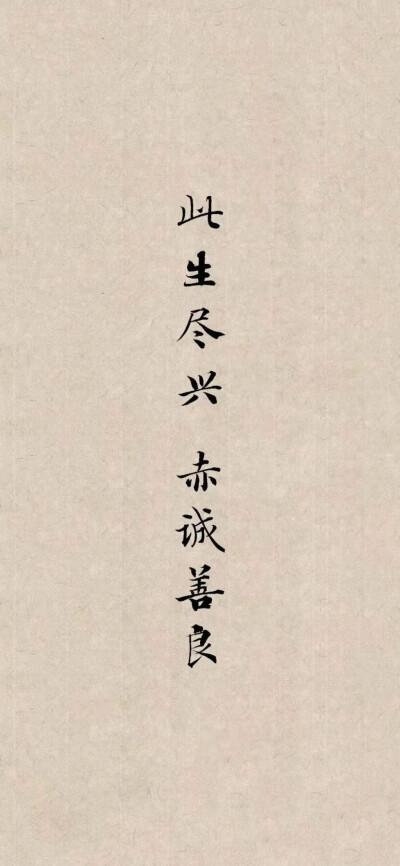 此生尽兴 赤诚善良